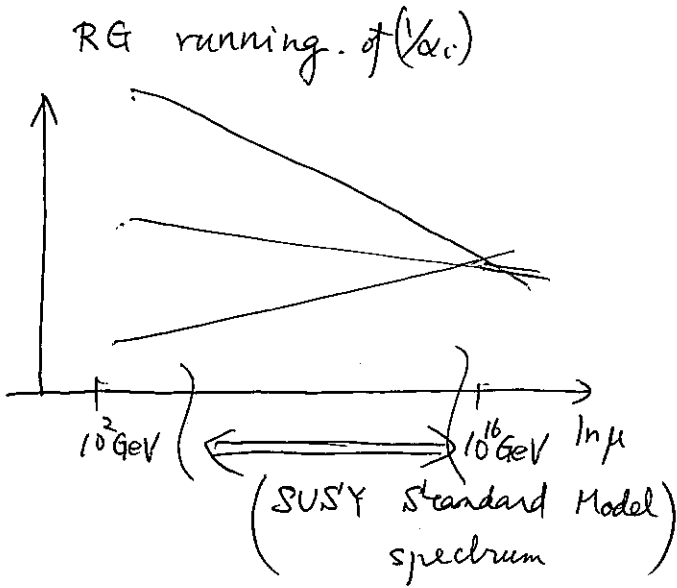 RG running. of (1/αi)
10² GeV
10¹⁶ GeV
ln μ
(SUSY Standard Model)
spectrum